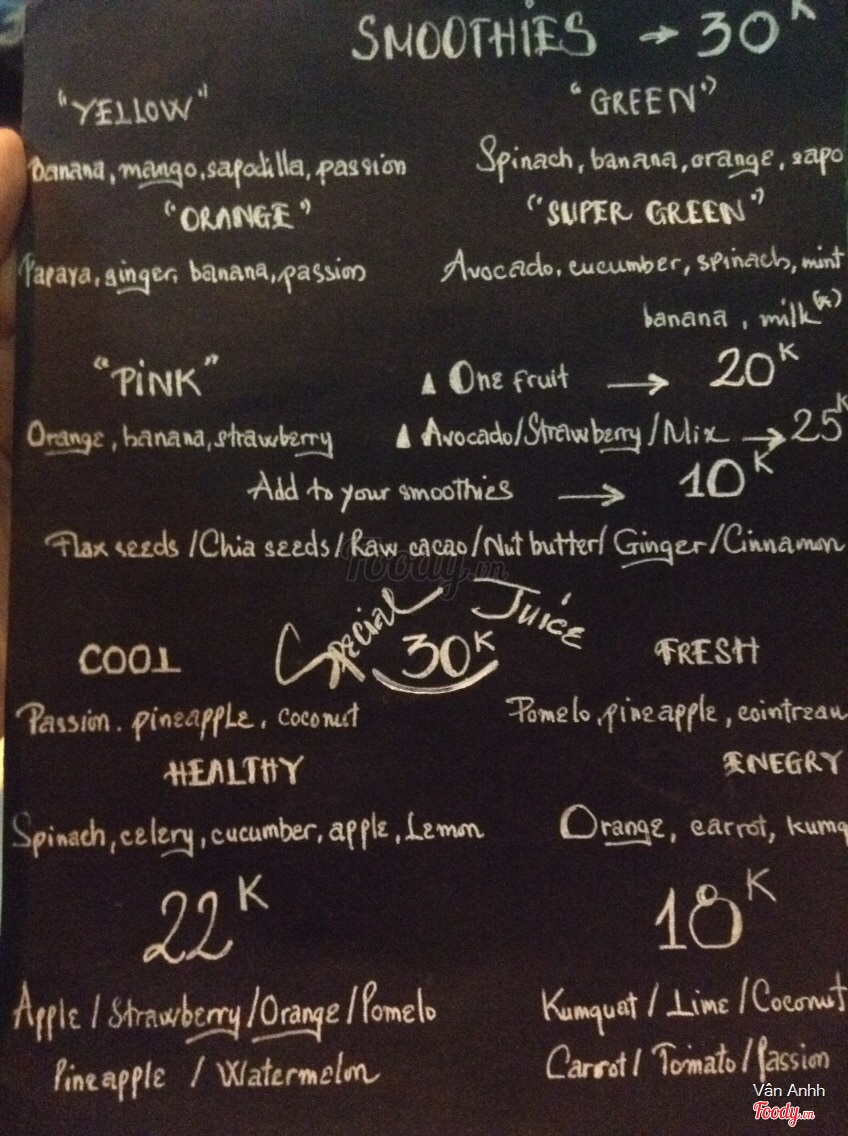 SMOOTHIES → 30K
"YELLOW"
Banana, mango, sapodilla, passion
"GREEN"
Spinach, banana, orange, sapo
"ORANGE"
Papaya, ginger, banana, passion
"SUPER GREEN"
Avocado, cucumber, spinach, mint
banana, milk (*)
"PINK"
Orange, banana, strawberry
▲ One fruit → 20K
▲ Avocado/Strawberry/Mix → 25K
Add to your smoothies → 10K
Flax seeds / Chia seeds / Raw cacao / Nut butter / Ginger / Cinnamon
Foody.vn
Special Juice
30K
COOL
Passion. pineapple, coconut
FRESH
Pomelo, pineapple, cointreau
HEALTHY
Spinach, celery, cucumber, apple, Lemon
ENEGRY
Orange, carrot, kumq
22K
Apple / Strawberry / Orange / Pomelo
Pineapple / Watermelon
18K
Kumquat / Lime / Coconut
Carrot / Tomato / Passion
Vân Anhh
Foody.vn